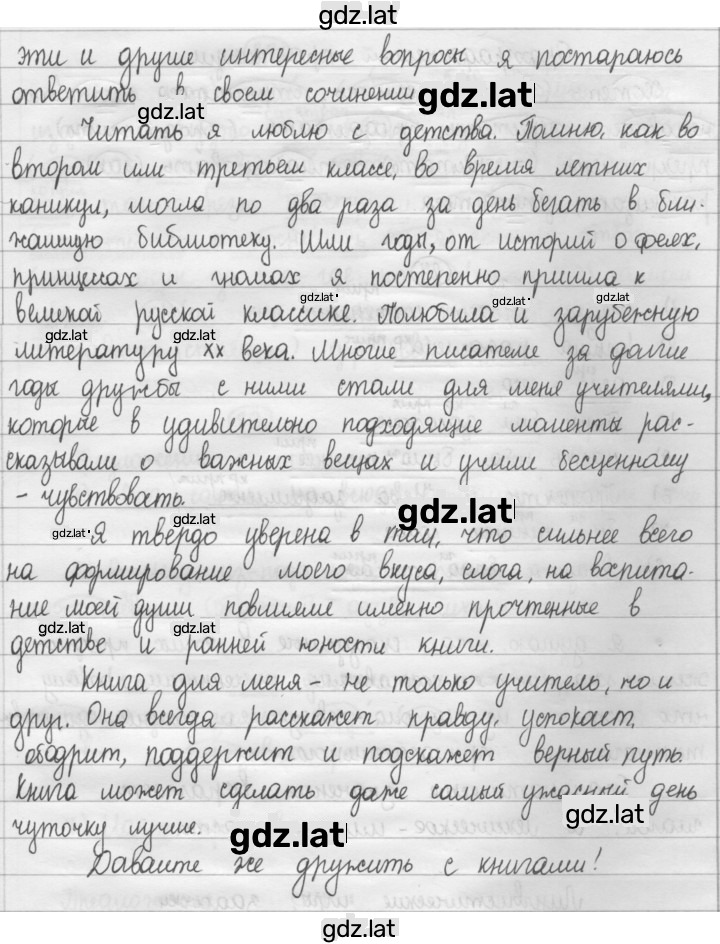 gdz.lat
эти и другие интересные вопросы я постараюсь
ответить в своем сочинении.
gdz.lat
gdz.lat
Читать я люблю с детства. Помню, как во
втором или третьем классе, во время летних
каникул, могла по два раза за день бегать в бли-
жайшую библиотеку. Шли годы, от историй о феях,
принцессах и гномах я постепенно пришла к
gdz.lat
gdz.lat
gdz.lat
великой русской классике. Полюбила и зарубежную
gdz.lat
gdz.lat
литературу XX века. Многие писатели за долгие
годы дружбы с ними стали для меня учителями,
которые в удивительно подходящие моменты рас-
сказывали о важных вещах и учили бесценному
- чувствовать.
gdz.lat
gdz.lat
gdz.lat
Я твердо уверена в том, что сильнее всего
на формирование моего вкуса, слога, на воспита-
ние моей души повлияли именно прочтенные в
gdz.lat
gdz.lat
детстве и ранней юности книги.
Книга для меня - не только учитель, но и
друг. Она всегда расскажет правду, успокоит,
ободрит, поддержит и подскажет верный путь.
Книга может сделать даже самый ужасный день
gdz.lat
чуточку лучше.
gdz.lat
Давайте же дружить с книгами!
gdz.lat